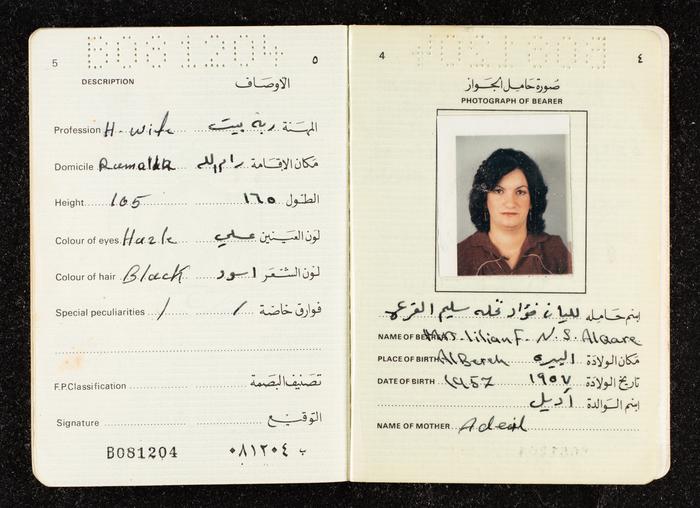 5 B081204 ٥
DESCRIPTION الأوصاف
Profession H. wife ربة بيت المهنة
Domicile Ramallh رام الله مكان الإقامة
Height 165 ١٦٥ الطول
Colour of eyes Hazle عسلي لون العينين
Colour of hair Black اسود لون الشعر
Special peculiarities / / فوارق خاصة
F.P.Classification تصنيف البصمة
Signature التوقيع
B081204 ب ٠٨١٢٠٤
4 B081204 ٤
صورة حامل الجواز
PHOTOGRAPH OF BEARER
ليليان فؤاد نخله سليم القرعه اسم حامله
NAME OF BEARER Mrs. lilian F. N. S. Alqare
PLACE OF BIRTH Al Bereh البيره مكان الولادة
DATE OF BIRTH 1957 ١٩٥٧ تاريخ الولادة
أديل اسم الوالدة
NAME OF MOTHER Adeil